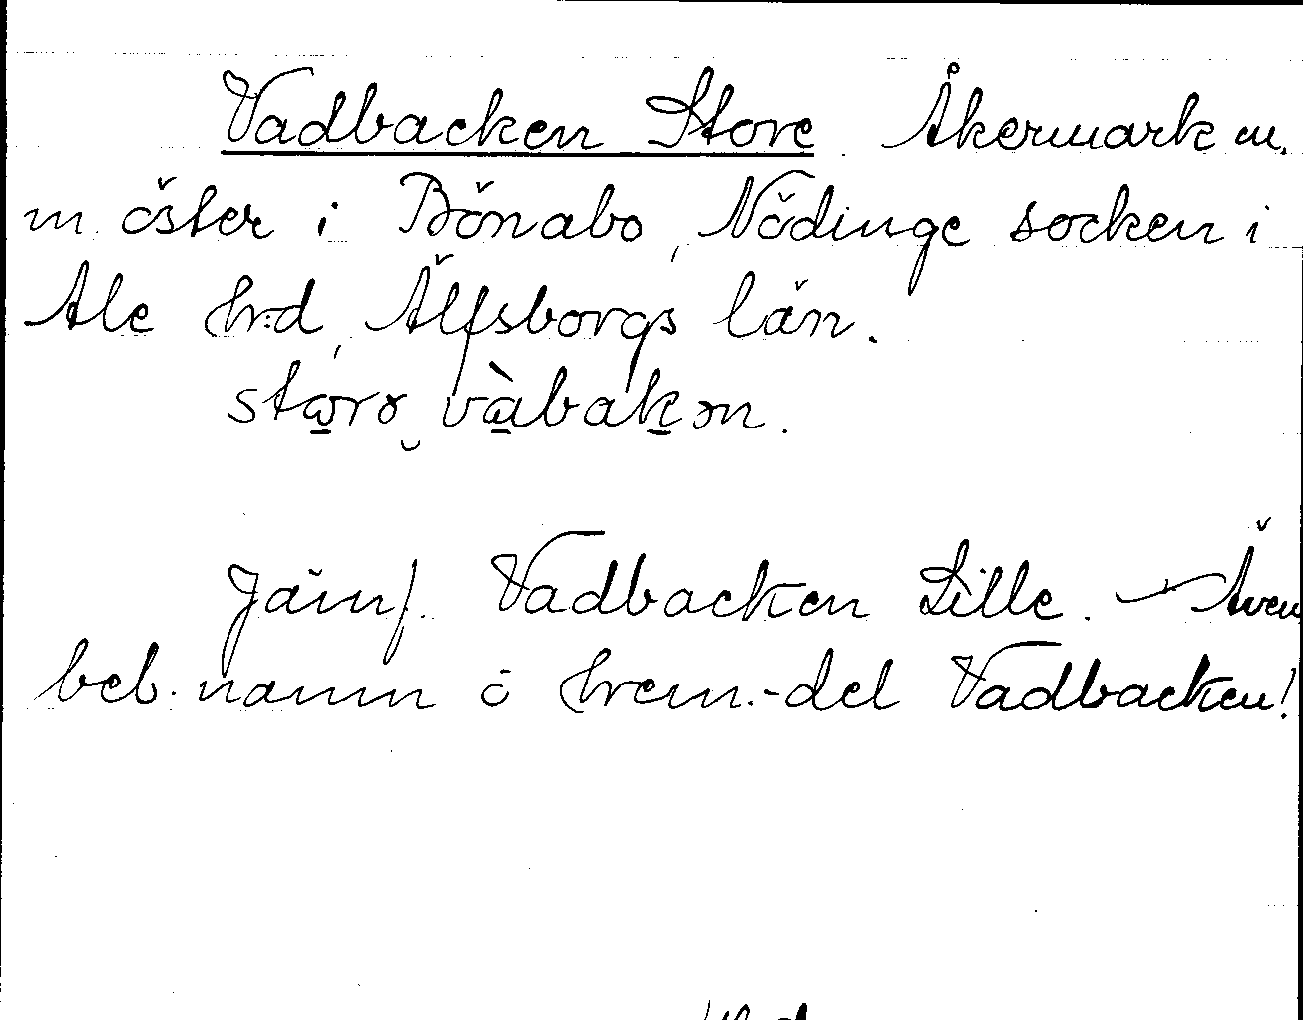 Vadbacken Store. Åkermark m.
m öster i Bönabo, Nödinge socken i
Ale hrd, Älfsborgs län.
starə vàbakən.
Jämf. Vadbacken Lille. – Även
beb. namn å hem.-del Vadbacken!